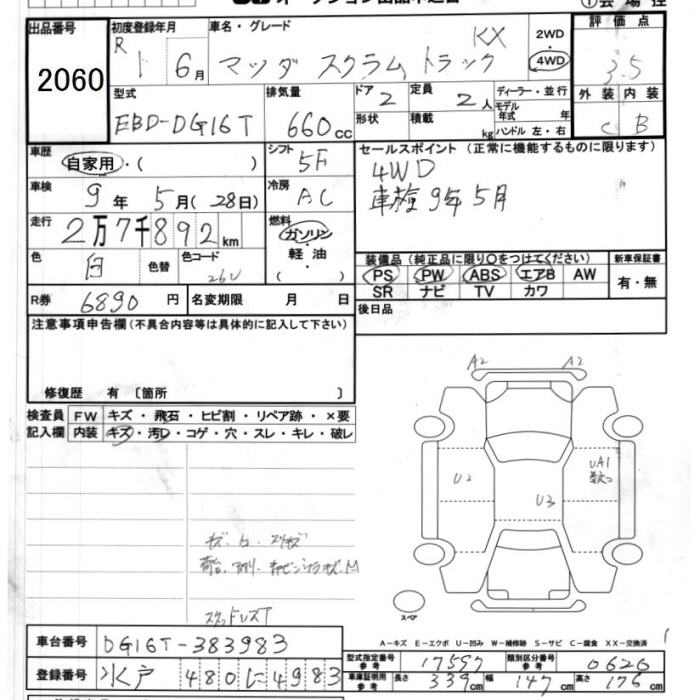 出品番号 初度登録年月 車名・グレード ①会場控
2060 R 1 6月 マツダ スクラム トラック KX 2WD ・ 4WD
評価点 3.5
型式 EBD-DG16T 排気量 660cc ドア 2 定員 2人 ディーラー・並行
形状 積載 kg モデル年式 年 ハンドル 左・右
外装 C 内装 B
車歴 自家用・( ) シフト 5F
車検 9年 5月(28日) 冷房 AC
走行 2万7千892km 燃料 ガソリン・軽油・( )
色 白 色替 色コード 26U
R券 6890円 名変期限 月 日
セールスポイント (正常に機能するものに限ります)
4WD
車検9年5月
装備品 (純正品に限り○をつけてください) 新車保証書
PS PW ABS エアB AW 有・無
SR ナビ TV カワ
後日品
注意事項申告欄(不具合内容等は具体的に記入して下さい)
修復歴 有 〔箇所 〕
検査員記入欄 FW キズ・飛石・ヒビ割・リペア跡・×要
内装 キズ・汚レ・コゲ・穴・スレ・キレ・破レ
A2 A2
U2 U3 UA1
スペア
A-キズ E-エクボ U-凹み W-補修跡 S-サビ C-腐食 XX-交換済
車台番号 DG16T-383983
登録番号 水戸 480 に 4983
型式指定番号 参考 17597 類別区分番号 参考 0626
車庫証明用 参考 長さ 339cm 幅 147cm 高さ 176cm